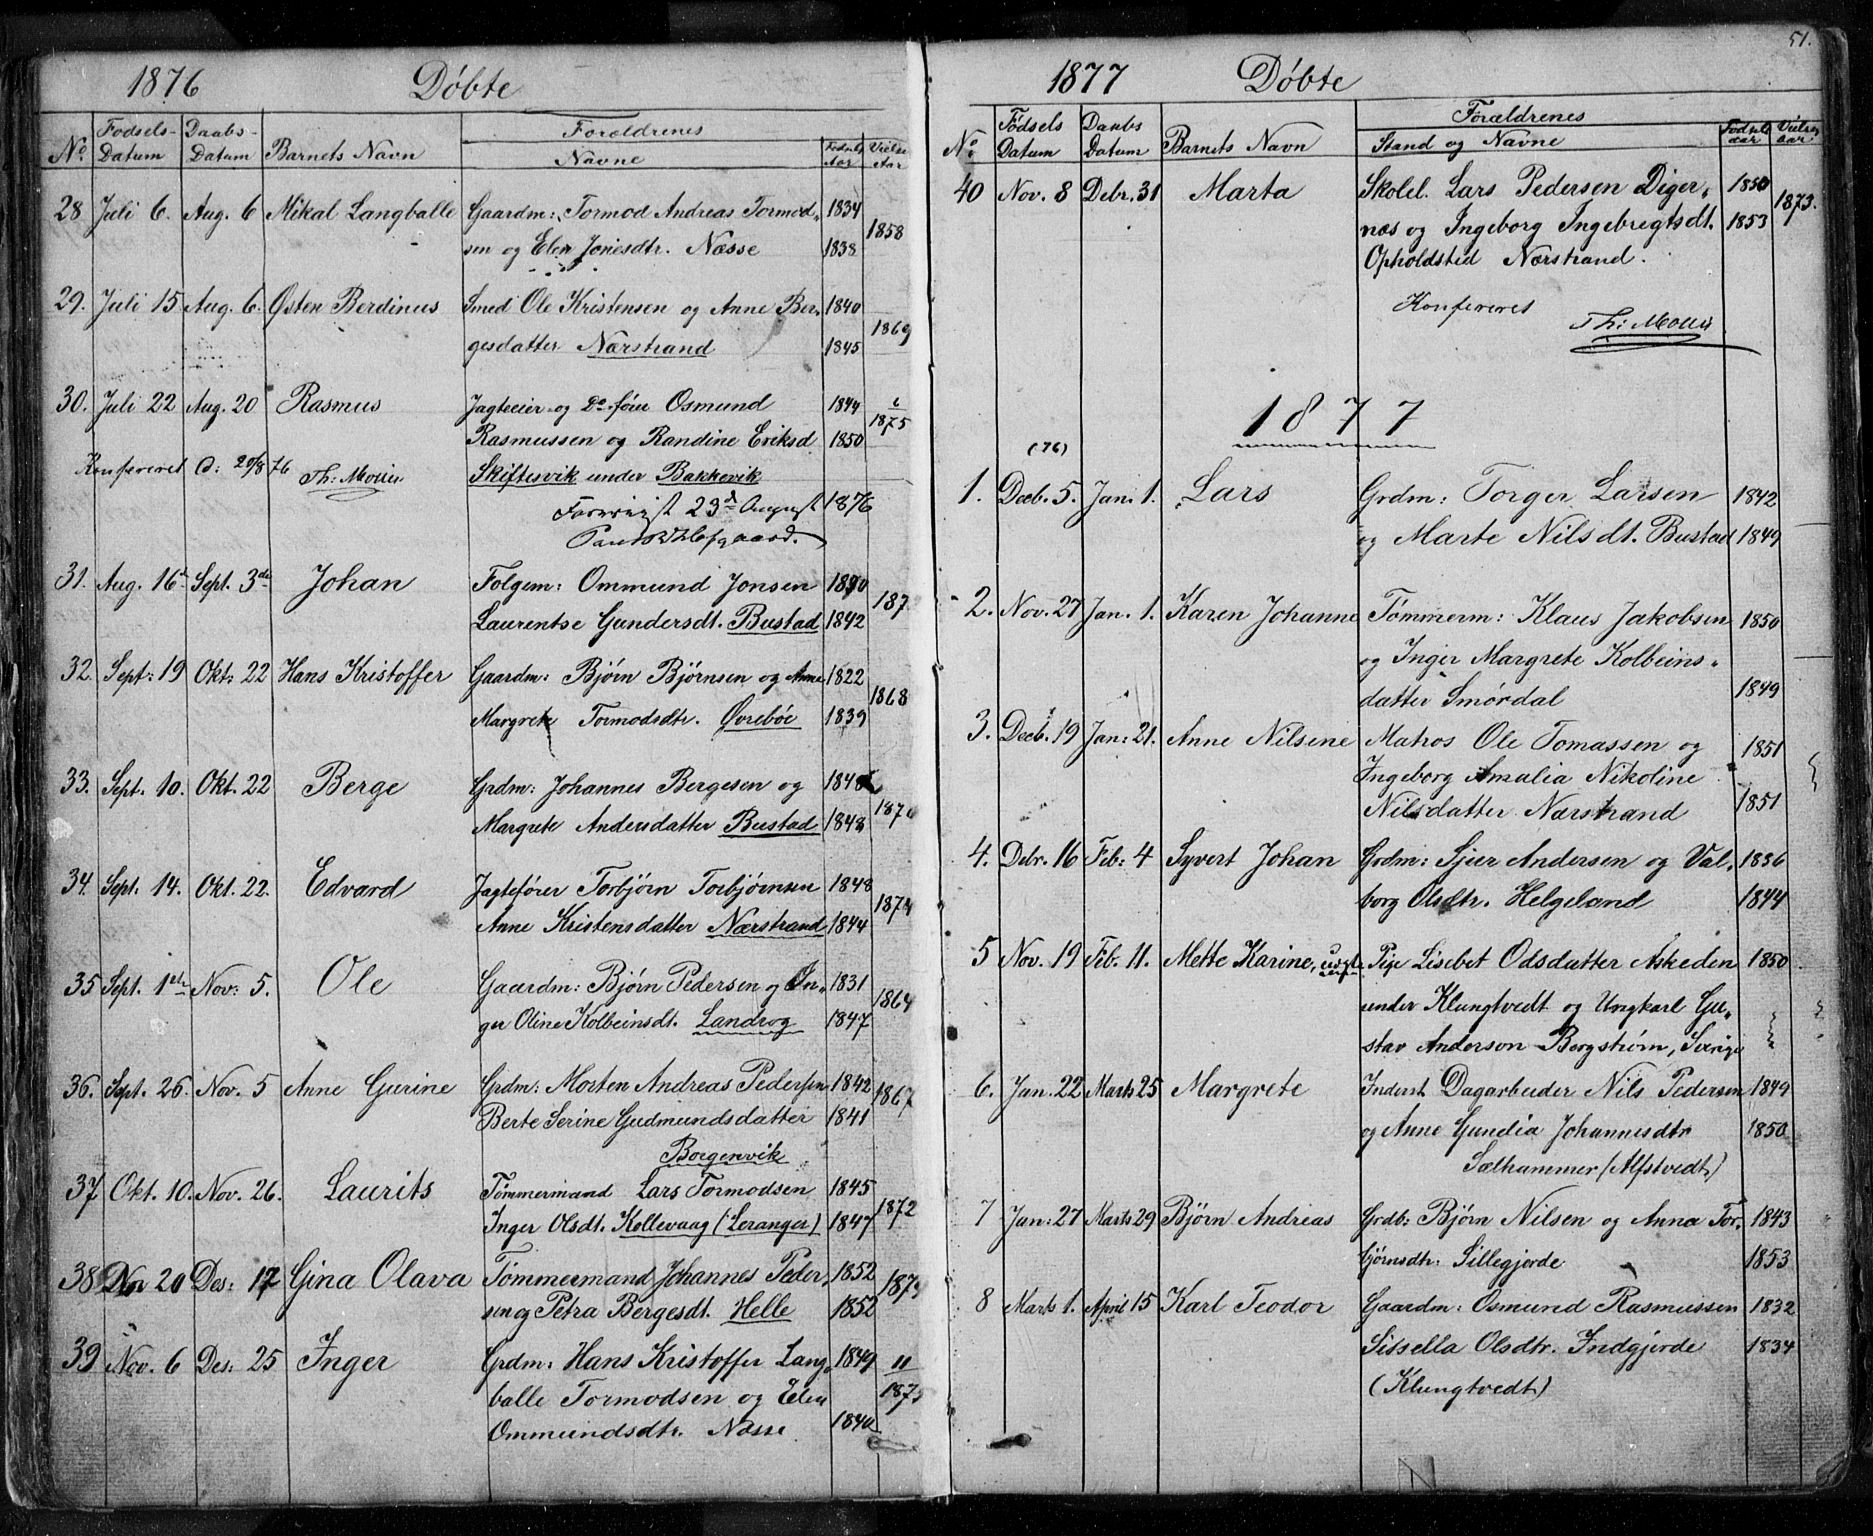 1876 Døbte
No. Fødsels-Datum Daabs-Datum Barnets Navn Foreldrenes Navne Fødsels Aar Vielse Aar
28. Juli 6. Aug. 6 Mikal Langballe Gaardm: Tormod Andreas Tormod- 1834 1858
sen og Elen Jonesdtr. Næsse 1838
29. Juli 15 Aug. 6. Østen Berdinus Smed Ole Kristensen og Anne Ber- 1840 1869
gesdatter Nærstrand 1845
30. Juli 22 Aug. 20 Rasmus Jagteeier og Do føer Osmund 1844 1875
Rasmussen og Randine Eriksd 1850
Konfereret d: 20/8 76 Th: Møller Skiftesvik under Bakkevik
23d August 1876
31. Aug. 16d Sept. 3de Johan Folgem: Ommund Jonsen 187
Laurentse Gundersdt. Bustad 1842
32. Sept: 19 Okt: 22 Hans Kristoffer Gaardm: Bjørn Bjørnsen og Anne 1822 1868
Margrete Tormodsdtr. Øvrebøe 1839
33. Sept. 10. Okt. 22 Berge Grdm: Johannes Bergesen og 1848
Margrete Andersdatter Bustad 1848
34. Sept. 14. Okt. 22. Edvard Jagtefører Torbjørn Torbjørnsen 1848 1874
Anne Kristensdatter Nærstrand 1844
35 Sept. 1ste Nov: 5. Ole Gaardm: Bjørn Pedersen og In- 1831 1864
ger Oline Kolbeinsdt. Landrog 1847
36. Sept. 26. Nov. 5 Anne Gurine Grdm: Morten Andreas Pedersen 1842 1867
Berte Serine Gudmundsdatter 1841
Borgenvik
37 Okt. 10. Nov. 26. Laurits Tømmermand Lars Tormodsen 1845 1872
Inger Olsdt. Kollevaag (Leranger) 1847
38 Nov 20 Des: 17 Gina Olava Tømmermand Johannes Peder- 1852 187
sen og Petra Bergesdt. Helle 1852
39 Nov. 6 Des: 25 Inger Grdm: Hans Kristoffer Lang- 1849 11
balle Tormodsen og Elen 187
Ommundsdtr. Næsse. 1840
51.
1877 Døbte
No. Fødsels Datum Daabs Datum Barnets Navn Forældrenes Stand og Navne Fødsels aar Vielses aar
40 Nov. 8 Debr. 31 Marta Skolel. Lars Pedersen Diger- 1850 1873.
næs og Ingeborg Ingebregtsdt. 1853
Opholdsted Nærstrand.
Konfereret
Th: Møller
1877
(76)
1. Decb. 5. Jan. 1. Lars Grdm: Torger Larsen 1842
og Marte Nilsdt. Bustad 1849
2. Nov. 27 Jan. 1. Karen Johanne Tømmerm: Klaus Jakobsen 1850
og Inger Margrete Kolbeins-
datter Smørdal 1849
3. Decb. 19 Jan: 21. Anne Nilsine Matros Ole Tomassen og 1851
Ingeborg Amalia Nikoline
Nilsdatter Nærstrand 1851
4. Debr. 16 Feb: 4 Syvert Johan Grdm: Sjur Andersen og Val- 1836
borg Olsdtr. Helgeland 1844
5 Nov. 19 Feb. 11. Mette Karine, uegte Pige Lisebet Odsdatter Askeden 1850
under Klungtvedt og Ungkarl Gu-
stav Anderson Borgstrøm, Sverige
6. Jan. 22 Marts 25 Margrete Inderst Dagarbeider Nils Pedersen 1849
og Anne Gundia Johannesdtr 1850
Sælhammer (Alfstvedt)
7 Jan: 27 Marts 29 Bjørn Andreas Grdb: Bjørn Nilsen og Anna Tor- 1843
bjørnsdtr: Sillegjorde 1853
8 Marts 1. April 15 Karl Teodor Gaardm: Osmund Rasmussen 1832
Sitsella Olsdtr. Indgjorde 1834
(Klungtvedt)